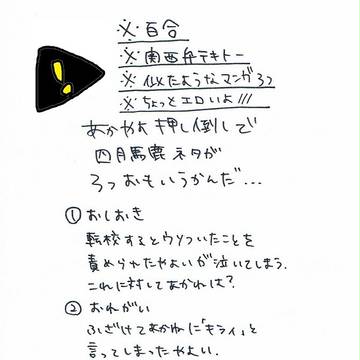 ※百合
※関西弁テキトー
※似たようなマンガ2つ
※ちょっとエロいよ///
あかやよ押し倒しで
四月馬鹿ネタが
2つおもいうかんだ…
①おしおき
転校するとウソついたことを
責められたやよいが泣いてしまう。
これに対してあかねは?
②おねがい
ふざけてあかねに「キライ」と
言ってしまったやよい。